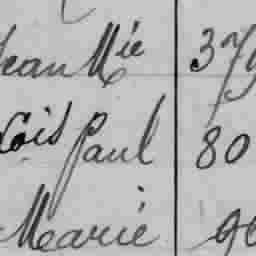 Jean Mie 379
cois Paul 80
Marie 90